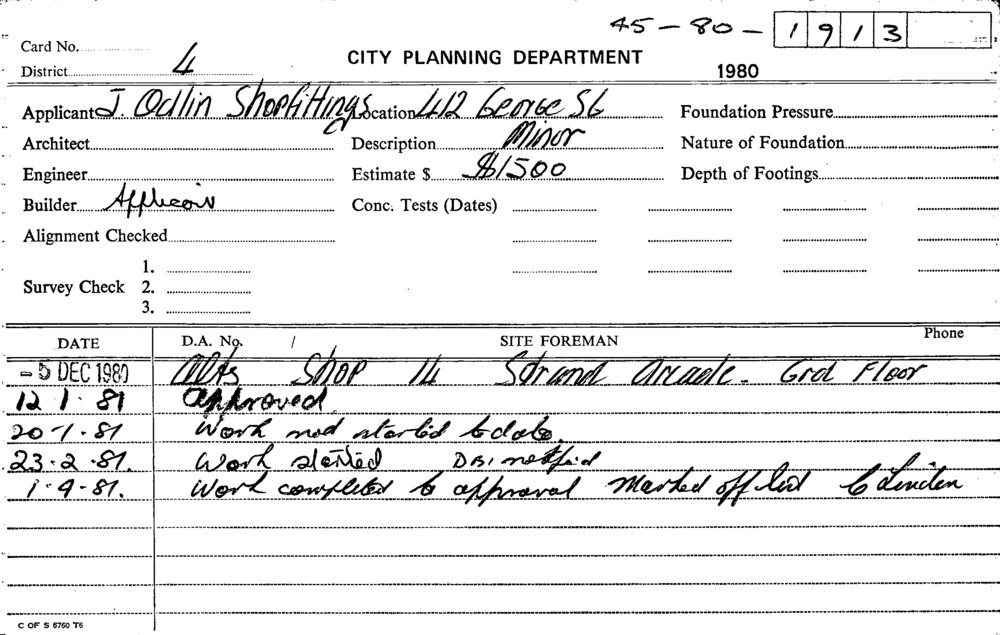 45-80-1913
Card No.
District 4
CITY PLANNING DEPARTMENT
1980
Applicant J. Odlin Shopfittings Location 412 George St Foundation Pressure
Architect Description Minor Nature of Foundation
Engineer Estimate $ $1500 Depth of Footings
Builder Applicant Conc. Tests (Dates)
Alignment Checked
1.
Survey Check 2.
3.
DATE D.A. No. / SITE FOREMAN Phone
-5 DEC 1980 Alts Shop 14 Strand Arcade - Grd Floor
12 1 81 Approved
20-1-81 Work not started to date.
23.2.81. Work started DBI notified
1-9-81. Work completed to approval Marked off list C Linden
C OF S 6760 T6